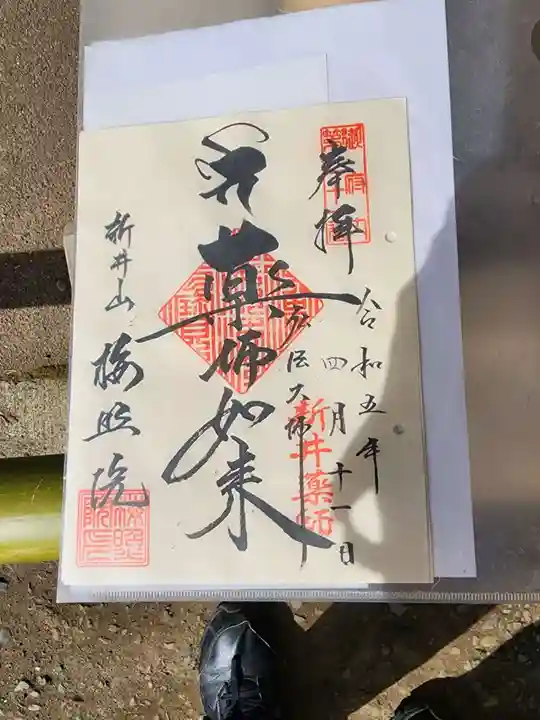 奉拝
令和五年
四月十一日
新井薬師
弘法大師
薬師如来
新井山
梅照院